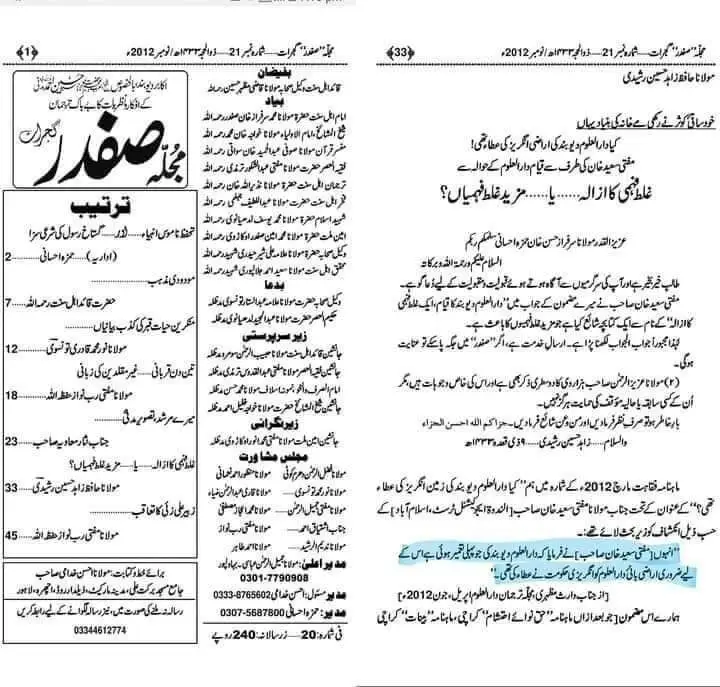 ﴿1﴾ مجلّہ ”صفدر“ گجرات — شمارہ نمبر 21 — ذوالحجہ ۱۴۳۳ھ / نومبر 2012ء
کے افکار و نظریات کا بے باک ترجمان
مجلّہ صفدر گجرات
ترتیب
تحفظ ناموس انبیاء ..... گستاخ رسول کی شرعی سزا
(اداریہ) ..... حمزہ احسانی 2
مودودی مذہب
حضرت قائد اہل سنت رحمہ اللہ 7
منکرین حیات قبر کی کذب بیانیاں
مولانا نور محمد قادری تونسوی 12
تین دن قربانی ..... غیر مقلدین کی زبانی
مولانا مفتی رب نواز حفظہ اللہ 18
میرے مرشد، تصویر مدنی
جناب نثار معاویہ صاحب 23
غلط فہمی کا ازالہ ..... یا ..... مزید غلط فہمیاں؟
مولانا حافظ زاہد حسین رشیدی 33
زبیر علی زئی کا تعاقب
مولانا مفتی رب نواز حفظہ اللہ 45
برائے خط و کتابت: مولانا احسن خدامی صاحب
جامع مسجد برکت علی، مدینہ مارکیٹ، ذیلدار روڈ، اچھرہ، لاہور
رسالہ نہ ملنے کی صورت میں، نیز رسالہ لگوانے کے لیے
03344612774
بفیضان
قائد اہل سنت وکیل صحابہ مولانا قاضی مظہر حسین رحمہ اللہ
بیاد
امام اہل سنت حضرۃ مولانا محمد سرفراز خان صفدر رحمہ اللہ
شیخ المشائخ، امام الاولیاء مولانا خواجہ خان محمد رحمہ اللہ
مفسر قرآن مولانا صوفی عبدالحمید خان سواتی رحمہ اللہ
فقیہ العصر حضرۃ مولانا مفتی عبدالشکور ترمذی رحمہ اللہ
ترجمان اہل سنت حضرۃ مولانا نذیر اللہ خان رحمہ اللہ
فخر اہل سنت حضرۃ مولانا عبداللطیف جہلمی رحمہ اللہ
شہید اسلام حضرۃ مولانا محمد یوسف لدھیانوی رحمہ اللہ
امین ملت حضرۃ مولانا محمد امین صفدر اوکاڑوی رحمہ اللہ
وکیل صحابہ حضرۃ مولانا علامہ علی شیر حیدری شہید رحمہ اللہ
محقق اہل سنت مولانا سعید احمد جلالپوری شہید رحمہ اللہ
بدعا
وکیل صحابہ حضرۃ مولانا علامہ عبدالستار تونسوی مدظلہ
حکیم العصر حضرۃ مولانا عبدالمجید لدھیانوی مدظلہ
زیر سرپرستی
جانشین قائد اہل سنت مولانا حبیب الرحمٰن سومرو مدظلہ
جانشین فقیہ العصر مولانا مفتی عبدالقدوس ترمذی مدظلہ
امام الصرف والنحو نمونہ اسلاف مولانا محمد حسن مدظلہ
جانشین شیخ المشائخ حضرت مولانا خواجہ خلیل احمد مدظلہ
زیر نگرانی
جانشین امین ملت مولانا محمد انور اوکاڑوی مدظلہ
مجلس مشاورت
مولانا منظور احمد نعمانی
مولانا قاری عبدالرحمٰن ضیاء
مولانا مفتی رب نواز
جناب اشتیاق احمد
مولانا عبدالرحیم الرشید
مولانا احمد طاہر
مدیر اعلیٰ: مولانا جمیل الرحمٰن عباسی، بہاولپور
0301-7790908
مدیر مسئول: احسن خدامی 0333-8765602
مدیر: حمزہ احسانی 0307-5687800
فی شمارہ: 20 — زر سالانہ: 240 روپے
﴿33﴾ مجلّہ ”صفدر“ گجرات — شمارہ نمبر 21 — ذوالحجہ ۱۴۳۳ھ / نومبر 2012ء
مولانا حافظ زاہد حسین رشیدی
خود ساقی کوثر نے رکھی مے خانہ کی بنیاد یہاں
کیا دارالعلوم دیوبند کی اراضی انگریز کی عطاء تھی!
مفتی سعید خان کی طرف سے قیام دارالعلوم کے حوالہ سے
غلط فہمی کا ازالہ ...... یا ...... مزید غلط فہمیاں؟
عزیز القدر مولانا سرفراز حسن خان حمزہ احسانی سلمکم ربکم
السلام علیکم ورحمۃ اللہ وبرکاتہ
طالب خیر بخیر ہے اور آپ کی سرگرمیوں سے آگاہ ہوتے ہوئے قبولیت و مقبولیت کے لیے دعا گو ہے۔
مفتی سعید خان صاحب نے میرے مضمون کے جواب میں ”دارالعلوم دیوبند کا قیام، ایک غلط فہمی
کا ازالہ“ کے نام سے ایک کتابچہ شائع کیا ہے جو مزید غلط فہمیوں کا باعث ہے۔
لہٰذا مجبوراً جواب الجواب لکھنا پڑا ہے۔ ارسال خدمت ہے، اگر ”صفدر“ میں جگہ پاسکے تو عنایت
ہوگی۔
(۲) مولانا عزیز الرحمٰن صاحب ہزاروی کا دو سطری ذکر بھی ہے اور اس کی خاص وجوہات ہیں، مگر
اُن کے کسی سابقہ یا حالیہ مؤقف کی حمایت ہرگز نہیں۔
بار خاطر ہو تو صرفِ نظر فرمادیں اور من و عن شائع فرمادیں۔ جزاکم اللہ احسن الجزاء
والسلام ..... زاہد حسین رشیدی، ۹ ذی قعدہ ۱۴۳۳ھ
ماہنامہ فقاہت مارچ 2012ء کے شمارہ میں ہم ”کیا دارالعلوم دیوبند کی زمین انگریز کی عطاء
تھی؟“ کے عنوان کے تحت جناب مولانا مفتی سعید خان صاحب [الندوۃ ایجوکیشنل ٹرسٹ، اسلام آباد] کے
حسب ذیل انکشاف کو زیر بحث لائے تھے:
”انہوں [مفتی سعید خان صاحب] نے فرمایا کہ دارالعلوم دیوبند کی جو پہلی تعمیر ہوئی ہے اس کے
لیے ضروری اراضی بانی دارالعلوم کو انگریزی حکومت نے عطاء کی تھی۔“
[از جناب وارث مظہری، مجلّہ ترجمان دارالعلوم اپریل، جون 2012ء]
ہمارے اس مضمون [جو بعد ازاں ماہنامہ ”حق نوائے احتشام“ کراچی، ماہنامہ ”بینات“ کراچی